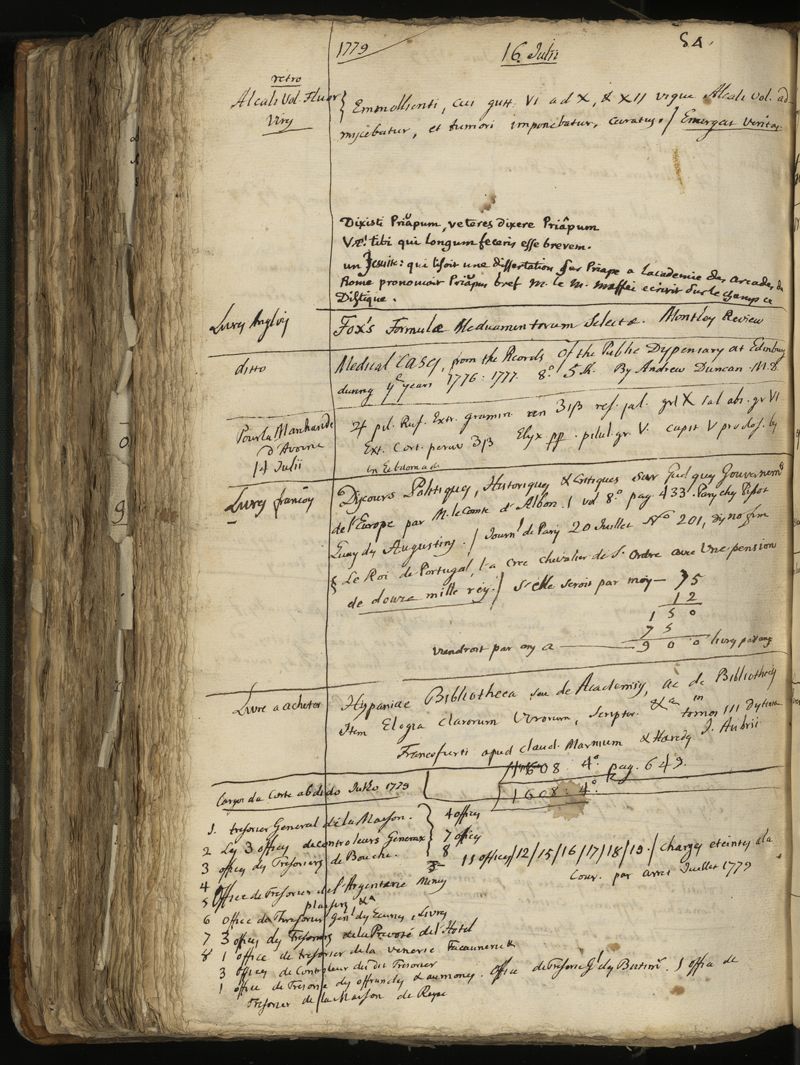 1779 16. Julii 54.
retro
Alcali Vol. Fluor
Emmollienti, cui gutt. VI ad X, & XII usque Alcali Vol. ad-
miscebatur, et tumori imponebatur, curatus. / Emergat Veritas
Dixisti Priăpum, veteres dixere Priâpum
Væ! tibi qui longum feceris esse brevem.
un Jesuite: qui lisoit une dissertation sur Priape a lacademie des Arcades de
Rome prononcoit Priăpus bref M. le M. Maffei ecrivit sur le champ ce
Distique.
Livres Anglois
Fox's Formulæ Medicamentorum Selectæ. Montley Review
ditto
Medical Cases, from the Records of the Public Dyspensary at Edinburg
during ye years 1776. 1777. 8° 5 sh. By Andrew Duncan M.D.
Pour la Marchande
14 Julii
pil. Ruf. Extr. gramin
Ext. Cort. peruv Elyx pp. pilul. gr V. capit V pro dos. bis
in Ebdomad.
Livres françois
Discours Politiques, Historiques & Critiques sur quelques Gouvernemts
de l'Europe par M. le Comte d'Albon. 1 vol 8° pag. 433. Paris chez Pissot
Quay des Augustins. / Journl de Paris 20 Juillet N° 201,
Le Roi de Portugal, l'a cree chevalier de S. Ordre avec une pension
de douze mille reis. / S'elle seroit par mois — 75
12
150
75
viendroit par ans a — 900 livres par ans
Livre a acheter
Hispaniae Bibliotheca seu de Academiis, ac de Bibliothecis
Item Elogia Clarorum Virorum, Scriptor. &a in tomos III
Francofurti apud Claud. Marnium & Haredes J. Aubrii
1608 4° pag. 649.
1608. 4°
1779
1. tresorier General de la Maison.
2 Les 3 offices de controleurs Generaux
3 offices des Tresoriers de Bouche.
4 offices
7 offices
8
11 offices/12/15/16/17/18/19. / charges eteintes a la
Cour. par arret Juillet 1779
4
5 Office de Tresorier de l'Argenterie Menus
plaisirs &a
6 Office de Tresorier Genl des Ecuries, & Livrées
7 3 offices des Tresoriers de la Prevoté de l'Hotel
8 1 office de tresorier de la venerie Fauconnerie &
3 offices de Controleur du dit Tresorier
1 office de Tresorie des offrandes & aumones. Office de Tresorie Gl des Batimts. 1 office de
Tresorier de la Maison de